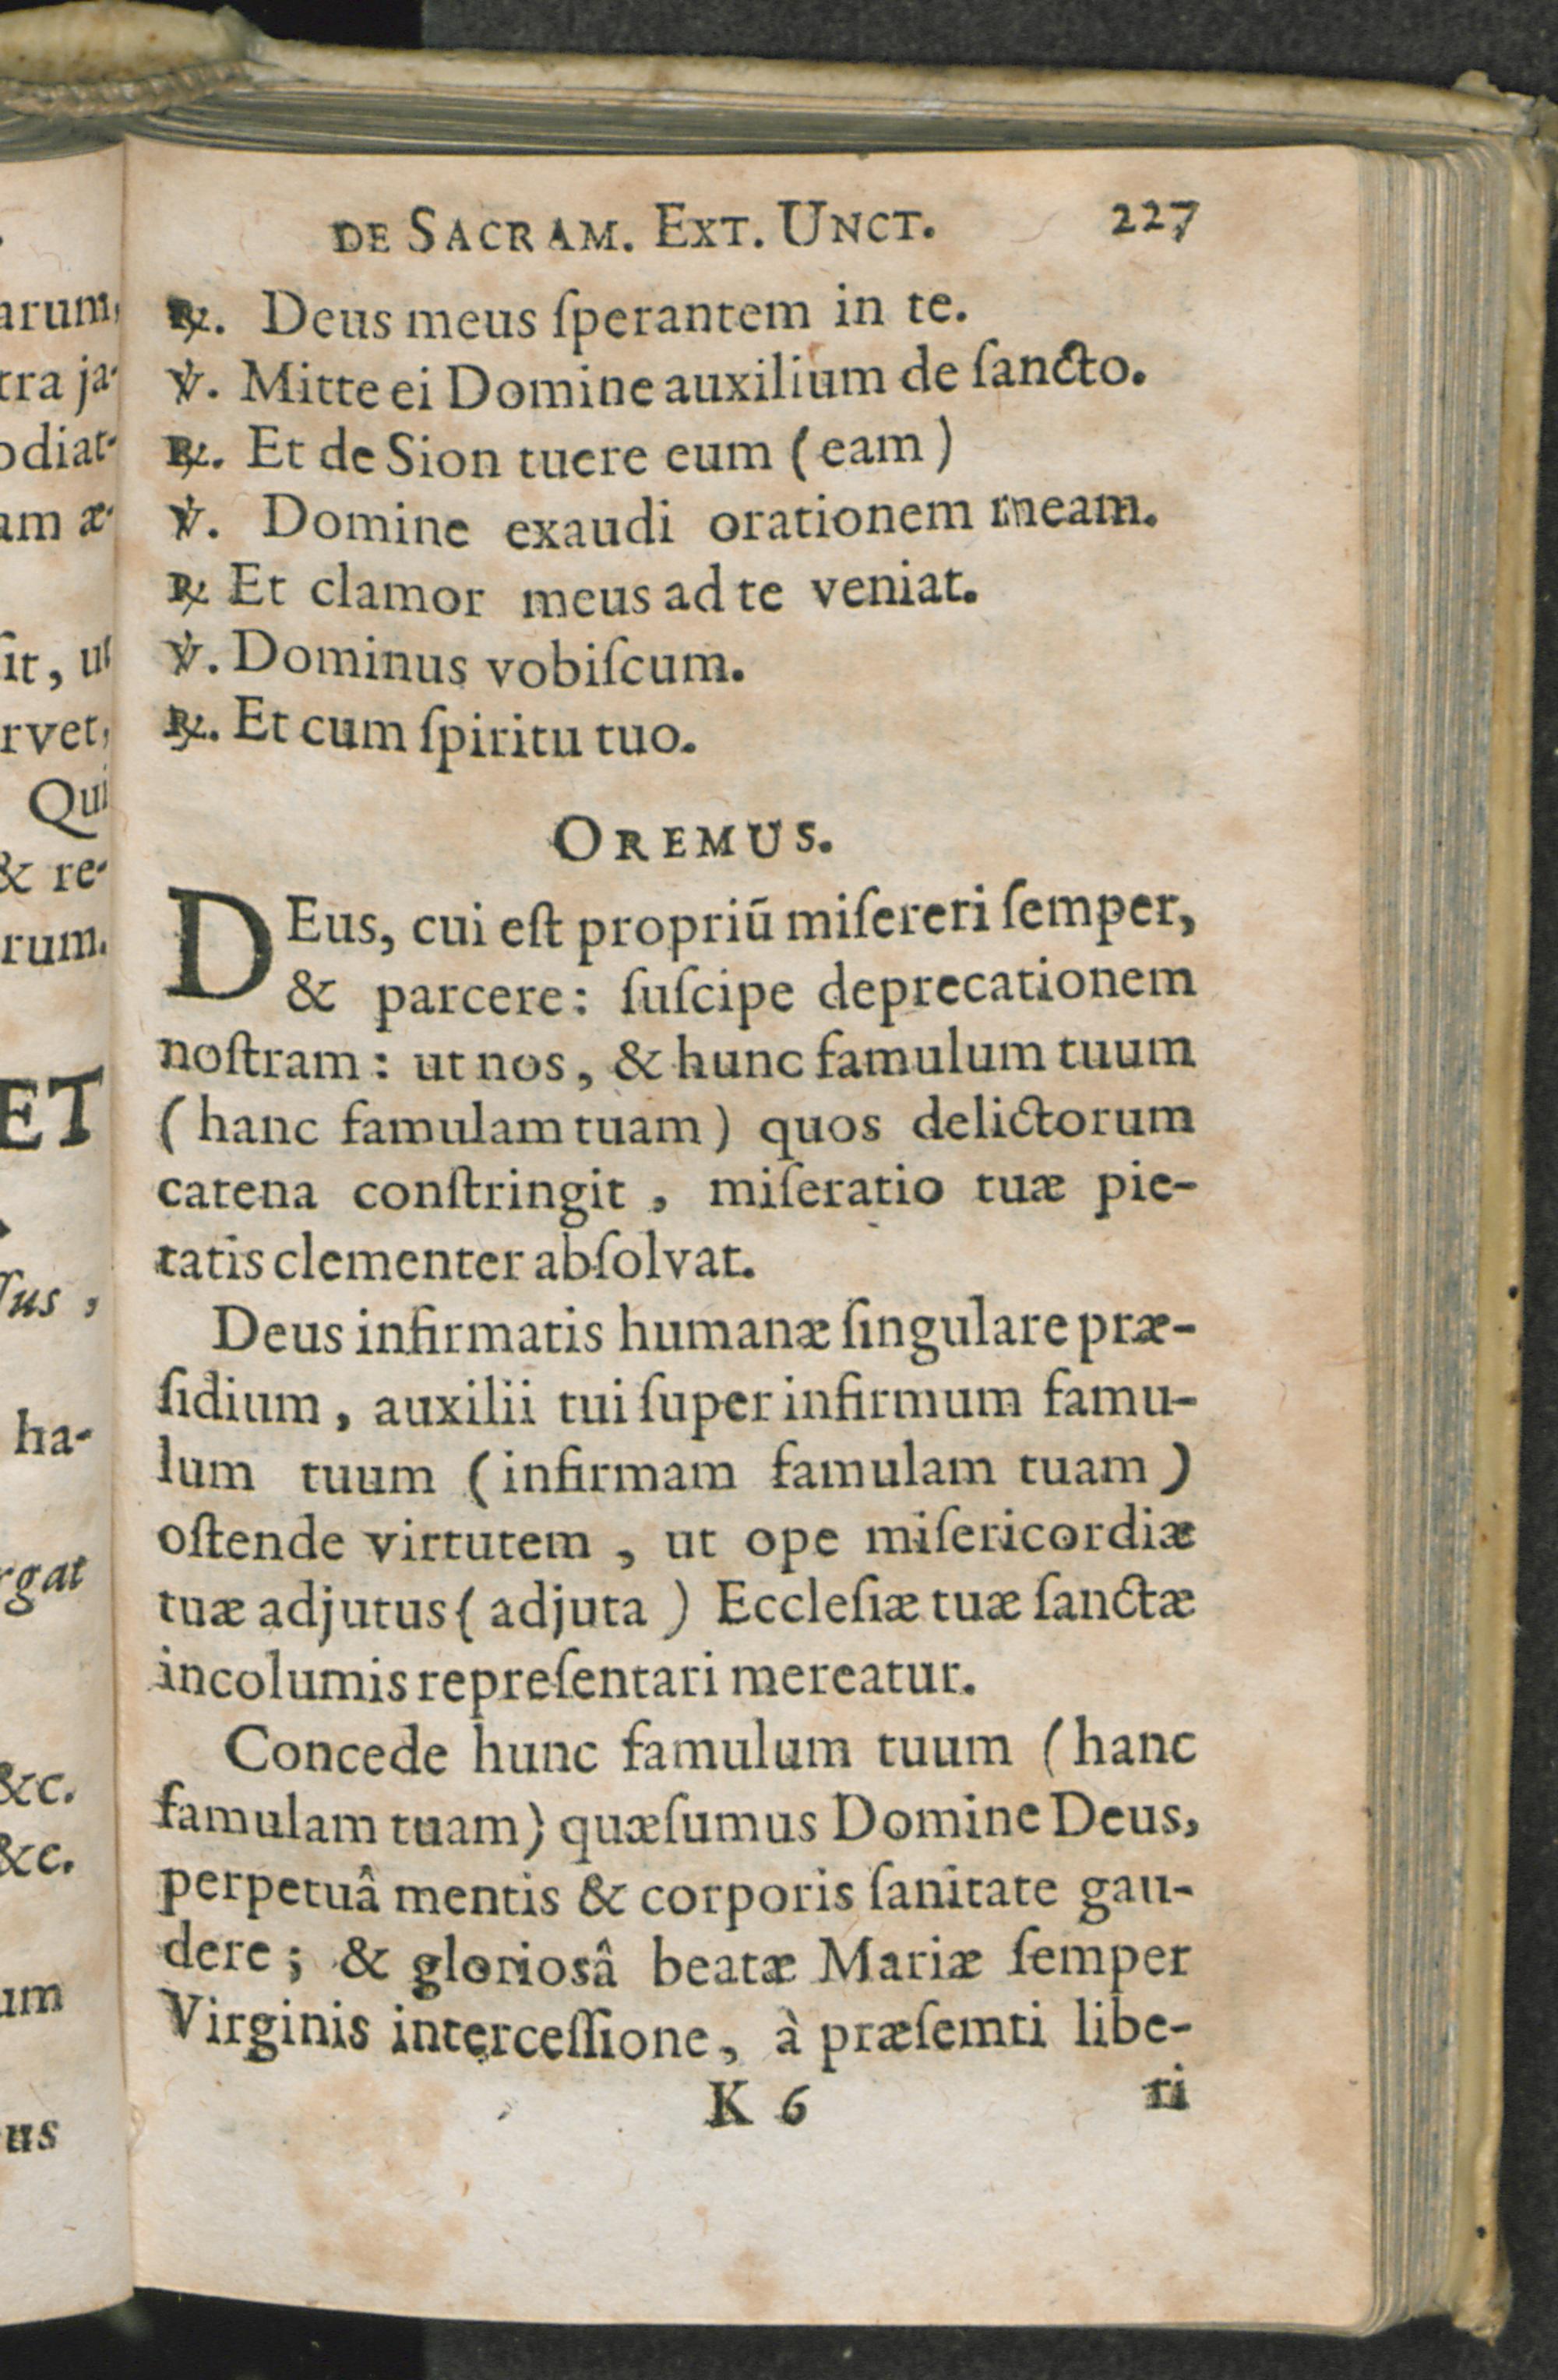 DE SACRAM. EXT. UNCT. 227
℟. Deus meus ſperantem in te.
℣. Mitte ei Domine auxilium de ſancto.
℟. Et de Sion tuere eum (eam)
℣. Domine exaudi orationem meam.
℟ Et clamor meus ad te veniat.
℣. Dominus vobiſcum.
℟. Et cum ſpiritu tuo.
OREMUS.
DEus, cui eſt propriū miſereri ſemper,
& parcere: ſuſcipe deprecationem
noſtram: ut nos, & hunc famulum tuum
(hanc famulam tuam) quos delictorum
catena conſtringit, miſeratio tuæ pie-
tatis clementer abſolvat.
Deus infirmatis humanæ ſingulare præ-
ſidium, auxilii tui ſuper infirmum famu-
lum tuum (infirmam famulam tuam)
oſtende virtutem, ut ope miſericordiæ
tuæ adjutus (adjuta) Eccleſiæ tuæ ſanctæ
incolumis repreſentari mereatur.
Concede hunc famulum tuum (hanc
famulam tuam) quæſumus Domine Deus,
perpetuâ mentis & corporis ſanitate gau-
dere; & gloriosâ beatæ Mariæ ſemper
Virginis interceſſione, à præſemti libe-
K 6 ri
arum,
tra ja-
odiat-
am æ-
ſit, ut
rvet,
Qui
& re-
rum.
ET
ſus,
ha-
rgat
&c.
&c.
um
us